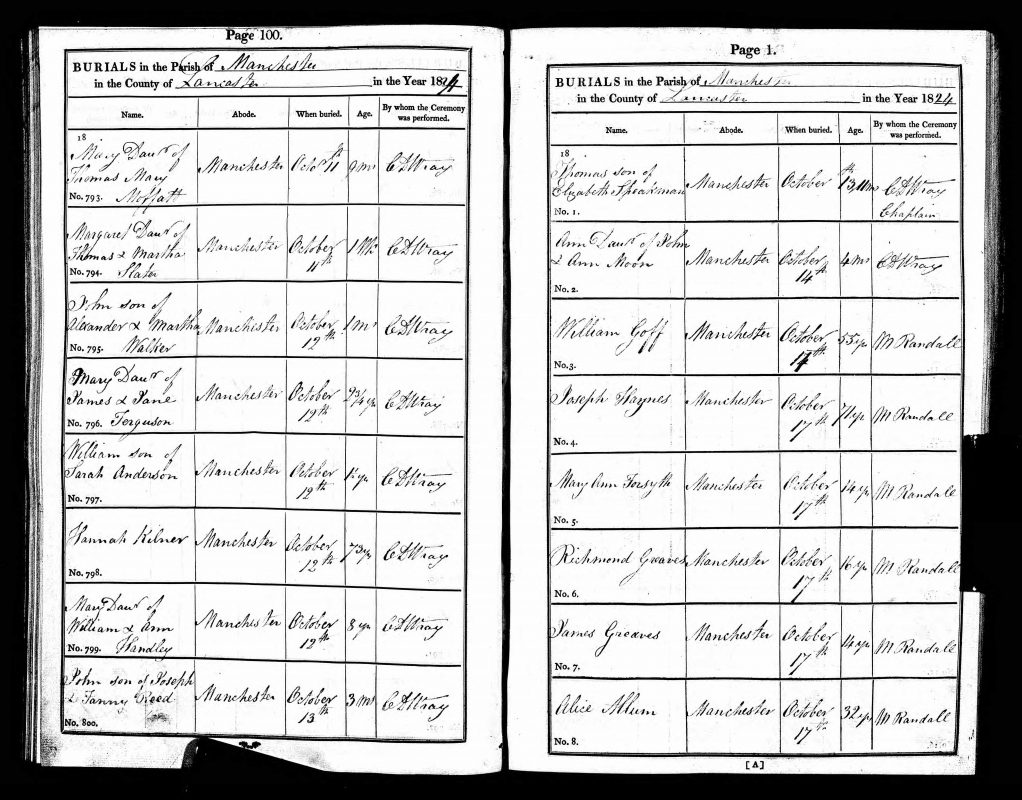 Page 100.
BURIALS in the Parish of Manchester
in the County of Lancaster in the Year 1824
Name. Abode. When buried. Age. By whom the Ceremony was performed.
18
Mary Daur of
Thomas Mary Manchester Octr 11th 9 ms CDWray
No. 793. Moffatt
Margaret Daur of
Thomas & Martha Manchester October 1 Wk CDWray
No. 794. Slater 11th
John son of
Alexander & Martha Manchester October 1 ms CDWray
No. 795. Walker 12th
Mary Daur of
James & Jane Manchester October 2¾ yr CDWray
No. 796. Ferguson 12th
William son of
Sarah Anderson Manchester October yr CDWray
No. 797. 12th
Hannah Kilner Manchester October 73 yr CDWray
No. 798. 12th
Mary Daur of
William & Ann Manchester October 8 yr CDWray
No. 799. Handley 12th
John son of Joseph
& Fanny Reed Manchester October 3 ms CDWray
No. 800. 13th
Page 1.
BURIALS in the Parish of Manchester
in the County of Lancaster in the Year 1824
Name. Abode. When buried. Age. By whom the Ceremony was performed.
18
Thomas son of
Elizabeth Speakman Manchester October 13th 11 ms CDWray
No. 1. Chaplain
Ann Daur of John
& Ann Moon Manchester October 4 ms CDWray
No. 2. 14th
William Goff Manchester October 55 yr M Randall
No. 3. 14th
Joseph Haynes Manchester October 71 yr M Randall
No. 4. 17th
Mary Ann Forsyth Manchester October 14 yr M Randall
No. 5. 17th
Richmond Greaves Manchester October 16 yr M Randall
No. 6. 17th
James Greaves Manchester October 14 yr M Randall
No. 7. 17th
Alice Allum Manchester October 32 yr M Randall
No. 8. 17th
[A]